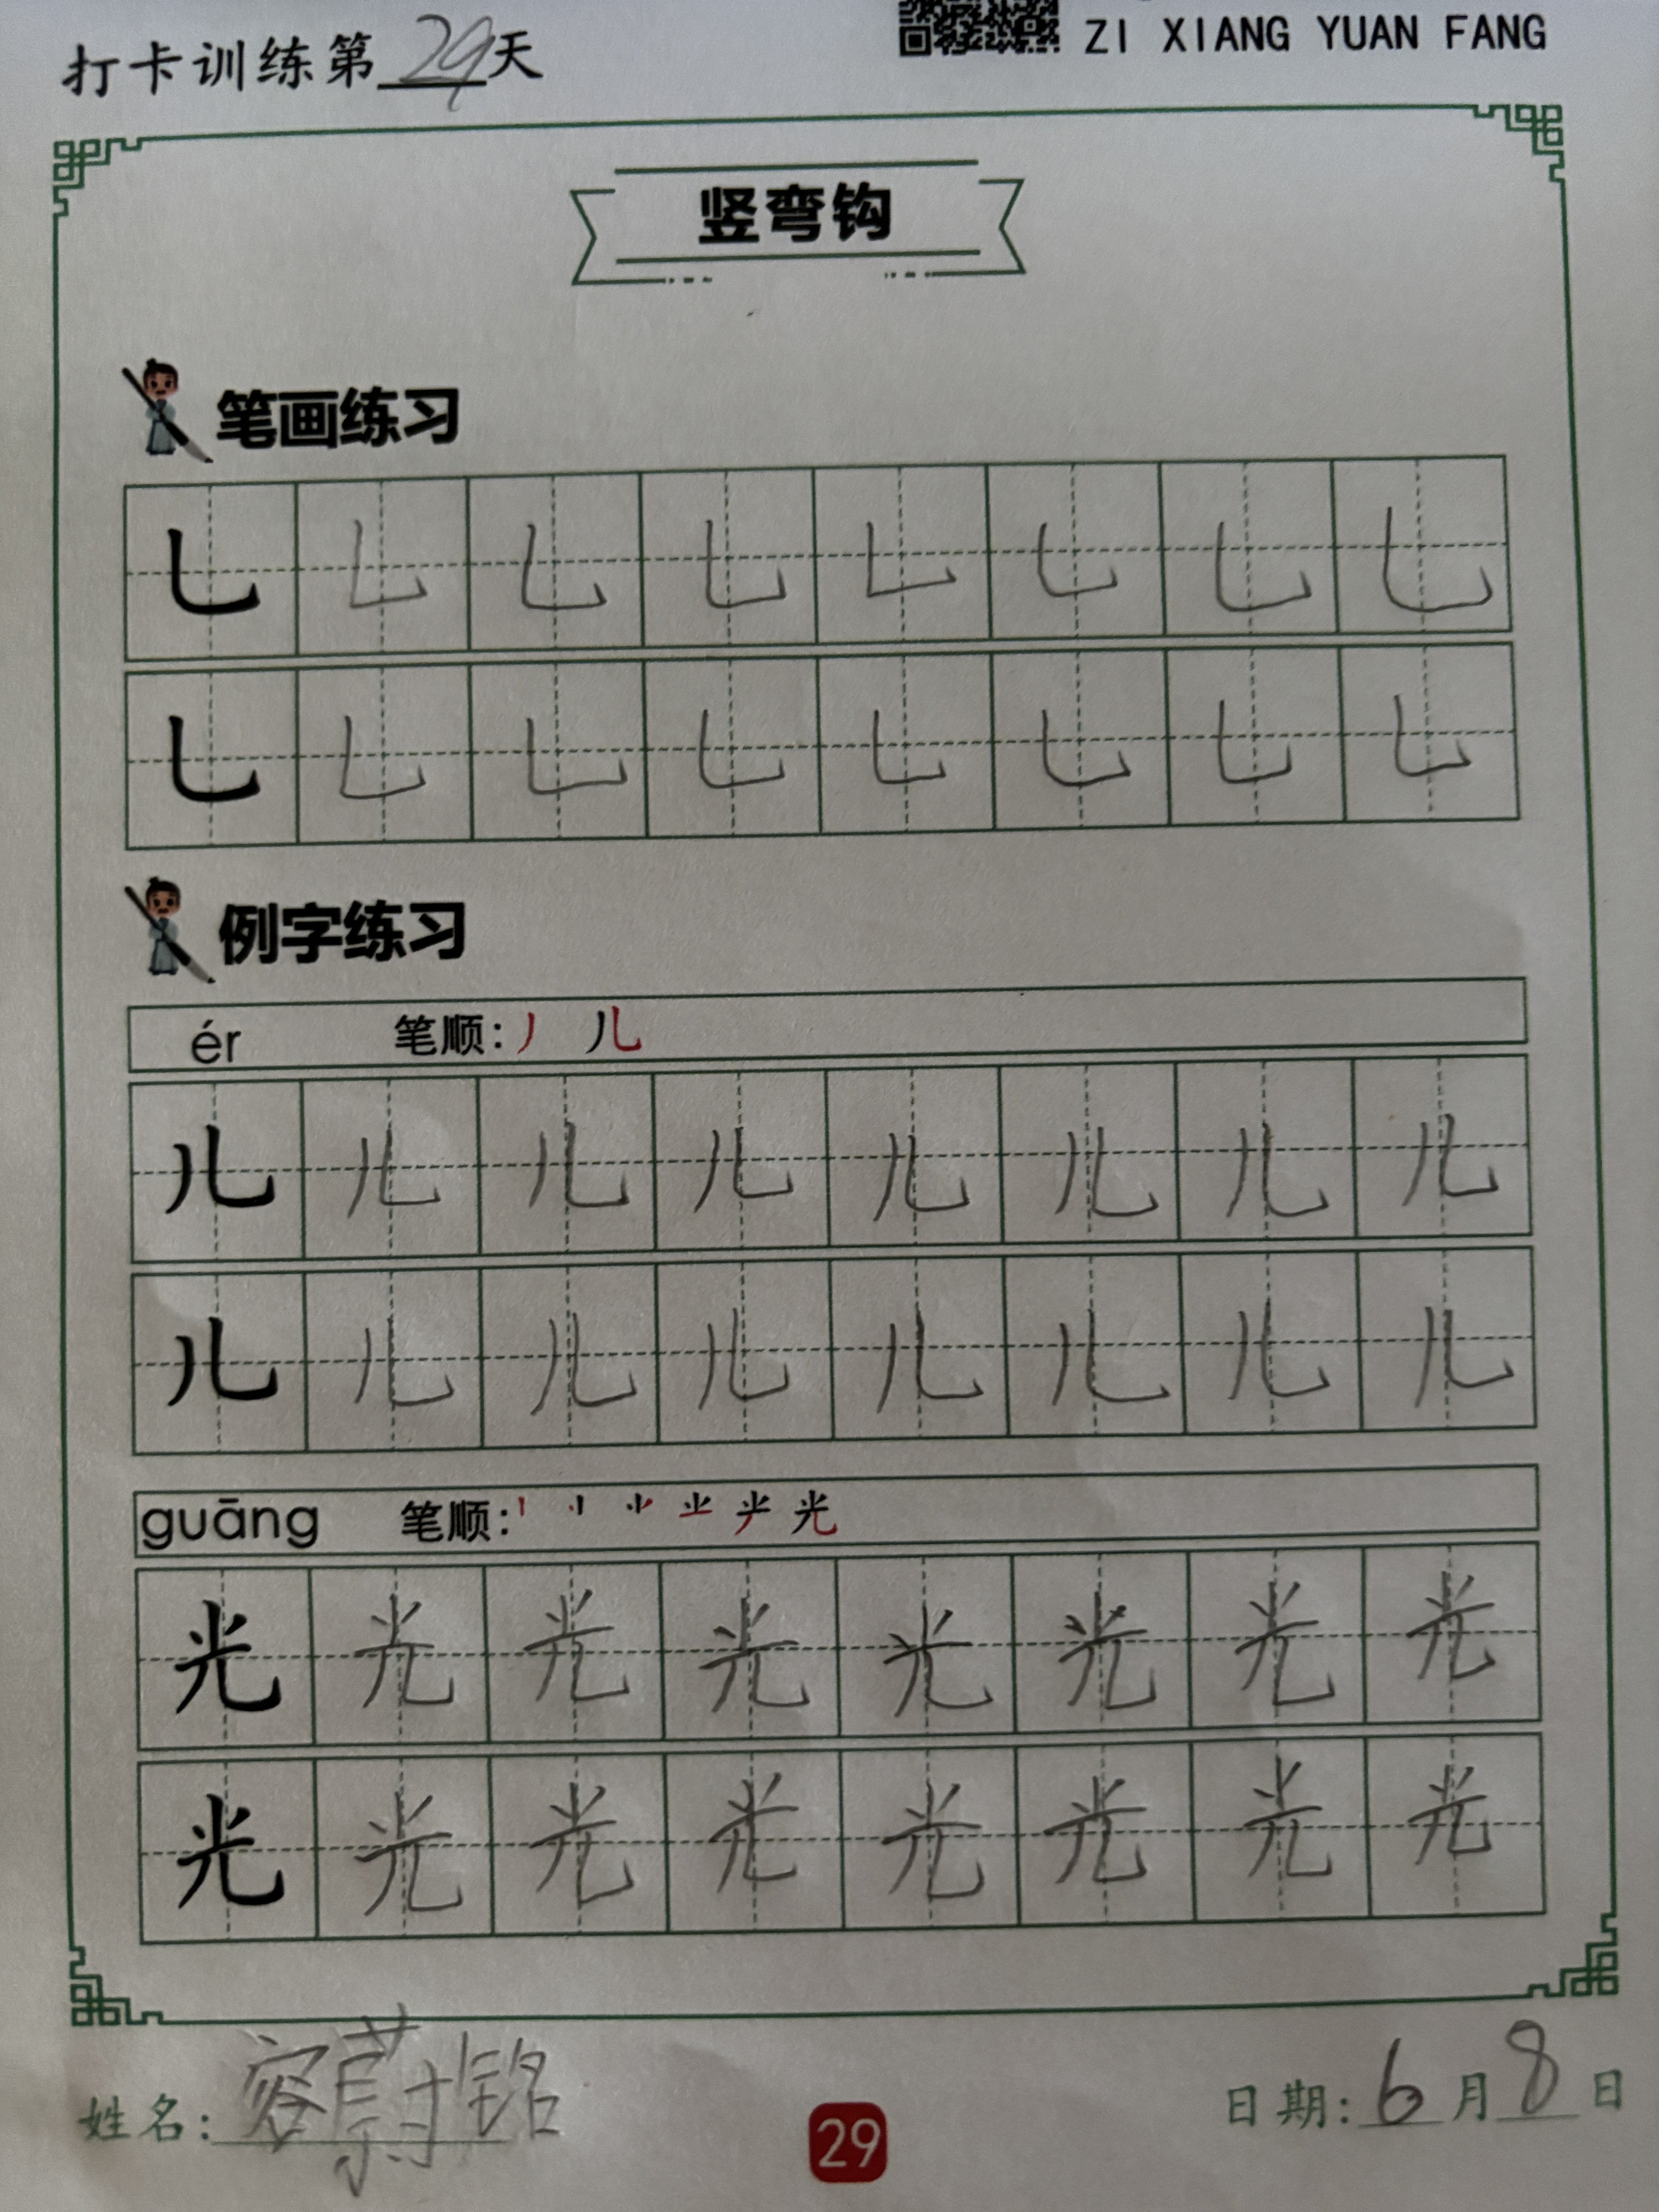 ZI XIANG YUAN FANG
打卡训练第29天
竖弯钩
笔画练习
乚 乚 乚 乚 乚 乚 乚 乚
乚 乚 乚 乚 乚 乚 乚 乚
例字练习
ér 笔顺: 丿 儿
儿 儿 儿 儿 儿 儿 儿 儿
儿 儿 儿 儿 儿 儿 儿 儿
guāng 笔顺: 光
光 光 光 光 光 光 光 光
光 光 光 光 光 光 光 光
姓名: 容蔚铭
29
日期: 6月8日